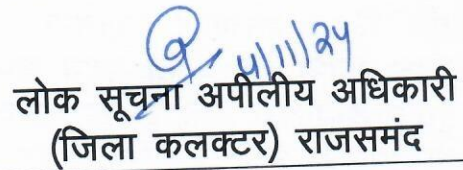 4/11/24
लोक सूचना अपीलीय अधिकारी
(जिला कलक्टर) राजसमंद